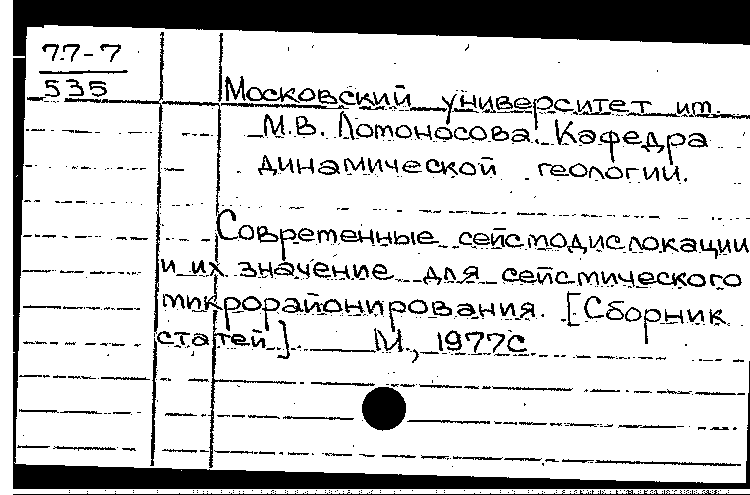 77-7
535
Московский университет им.
М.В. Ломоносова. Кафедра
динамической геологии.
Современные сейсмодислокации
и их значение для сейсмического
микрорайонирования. [Сборник
статей]. М., 1977с